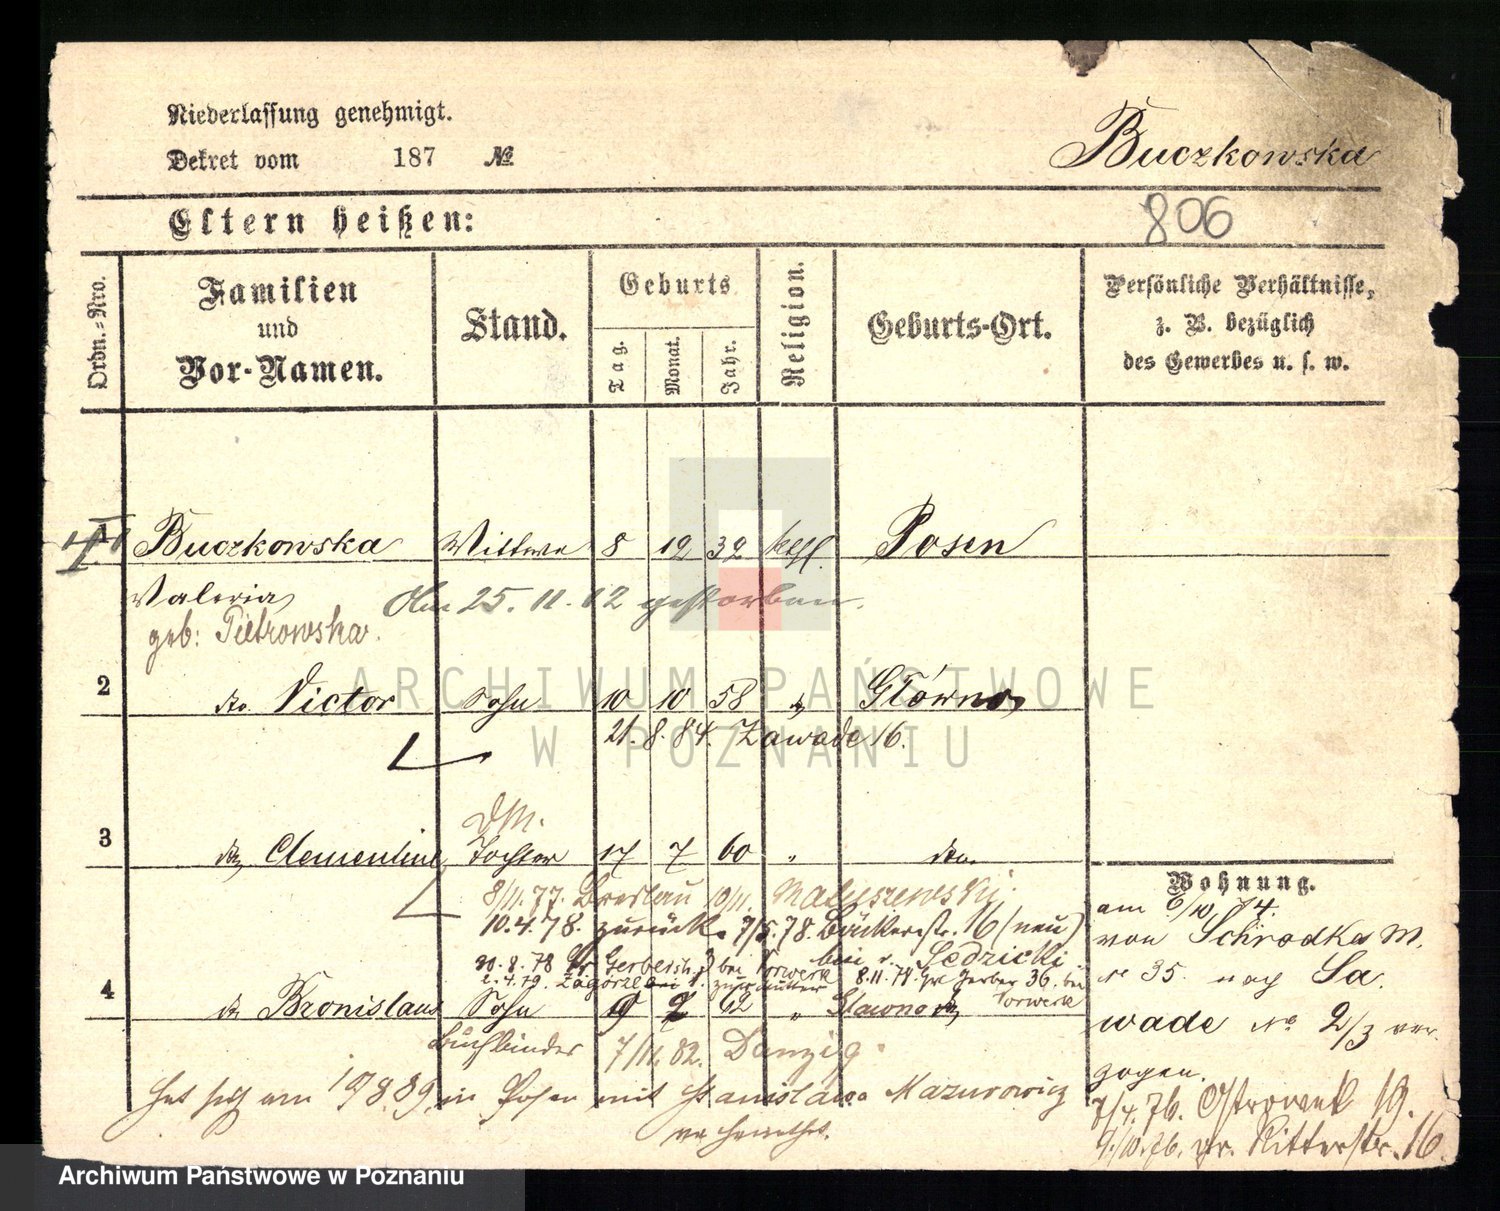 Niederlassung genehmigt.
Dekret vom 187 №
Buczkowska
Eltern heißen:
806
Ordn.=Nro.
Familien
und
Vor-Namen.
Stand.
Geburts
Tag.
Monat.
Jahr.
Religion.
Geburts-Ort.
Persönliche Verhältnisse,
z. B. bezüglich
des Gewerbes u. s. w.
1 Buczkowska Wittwe 8 12 32 kath. Posen
Valeria
Am 25. 11. 12 gestorben.
geb: Pietrowska.
2 do. Victor Sohn 10 10 58 " Główno
21. 8. 84. Zawade 16.
3 do Clementine Tochter 17 7 60 " do.
8/11. 77. Breslau 10/11. Matuszewski.
10.4.78. zurück. 7/5.78. Bäckerstr. 16 (neu)
bei v. Sedzicki
30.8.78 Gr Gerberstr. bei Vorwerk 8.11.78. Gr Gerber 36. bei
Vorwerk
2.4.79. Zagorze zur Mutter
4 do Bronislaus Sohn 9 2 62 " Glowno
Buchbinder 7/11. 82. Danzig.
Hat sich am 19/8.89. in Posen mit Stanislawa Mazurowicz
verheirathet.
Wohnung.
am 6/10. 74.
von Schrodka M.
№ 35 nach Sa
wade № 2/3 ver
zogen.
7/4. 76. Ostrowek 19.
9./10.76. gr. Ritterstr. 16.
ARCHIWUM PAŃSTWOWE
W POZNANIU
Archiwum Państwowe w Poznaniu